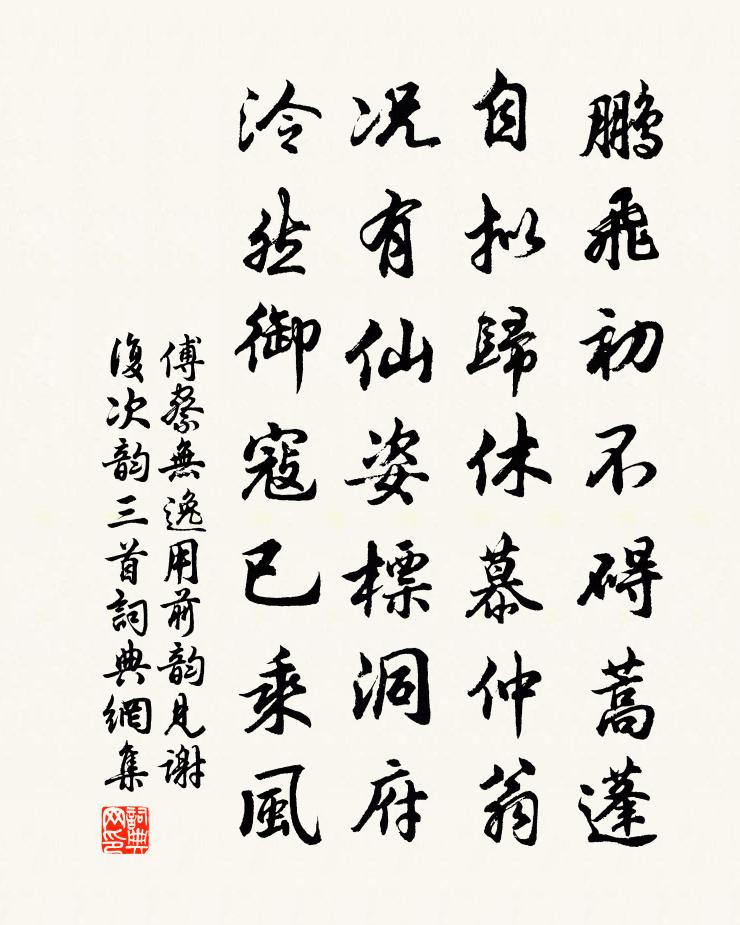 鵬飛初不碍蒿蓬
自拟歸休慕仲翁
况有仙姿標洞府
泠然御寇已乘風
傅察無逸用前韵見謝
復次韵三首詞典網集
詞典
网印